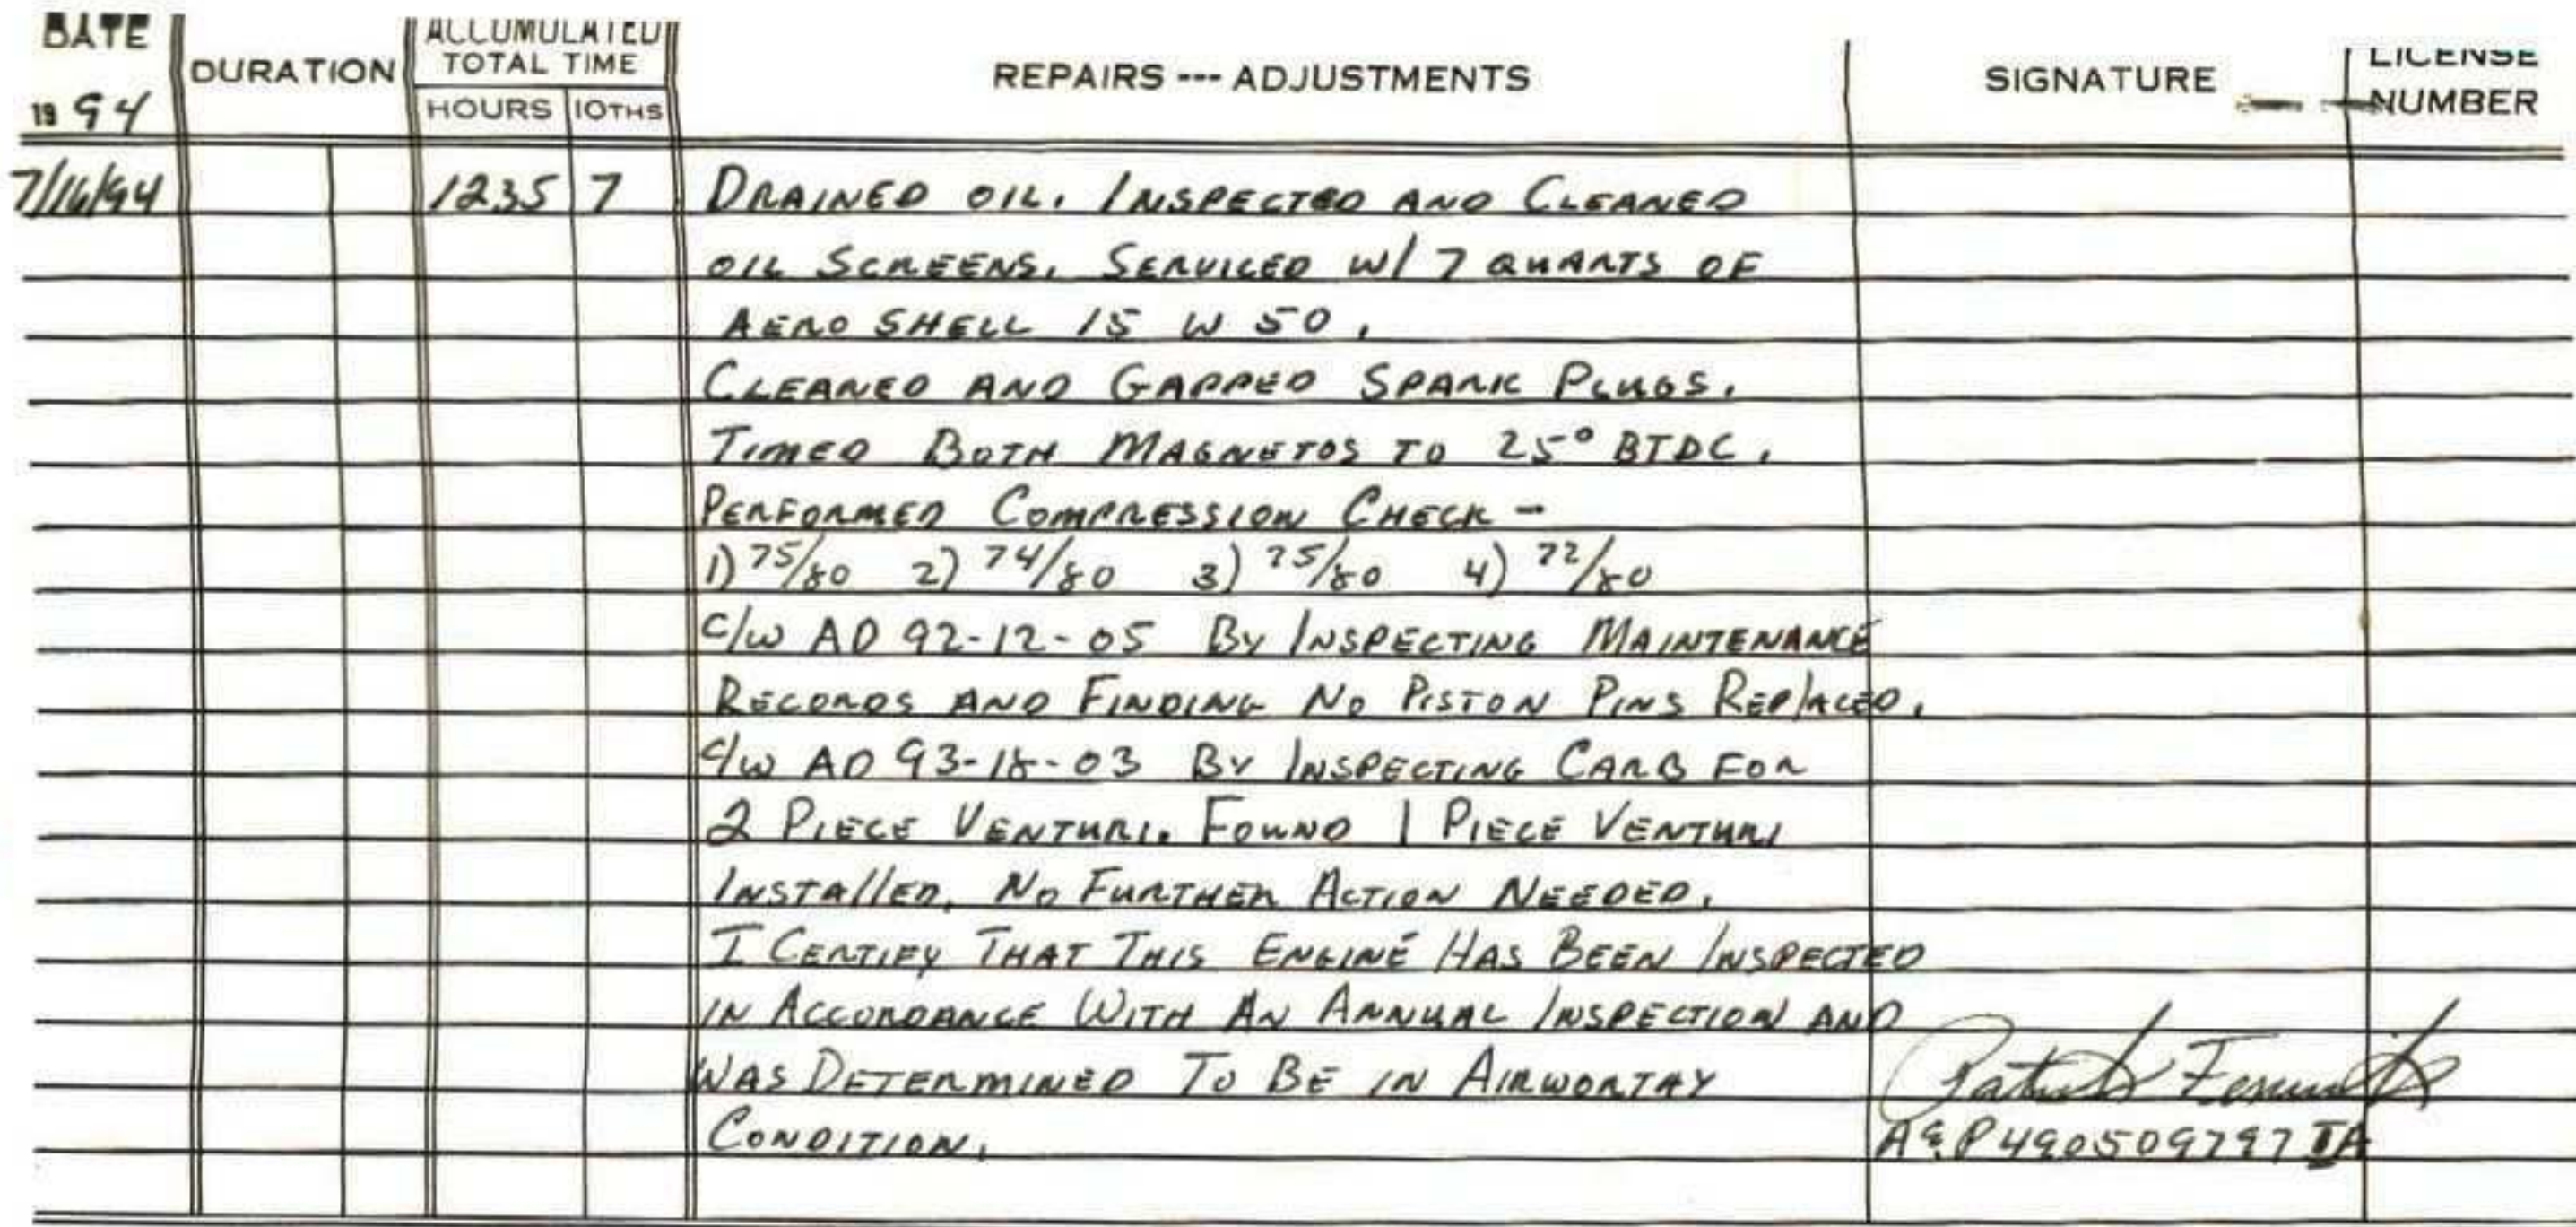 DATE
1994
DURATION
ACCUMULATED
TOTAL TIME
HOURS 10THS
REPAIRS --- ADJUSTMENTS
SIGNATURE
LICENSE
NUMBER
7/16/94 1235 7 DRAINED OIL. INSPECTED AND CLEANED
OIL SCREENS. SERVICED W/ 7 QUARTS OF
AERO SHELL 15 W 50.
CLEANED AND GAPPED SPARK PLUGS.
TIMED BOTH MAGNETOS TO 25° BTDC.
PERFORMED COMPRESSION CHECK -
1) 75/80 2) 74/80 3) 75/80 4) 72/80
C/W AD 92-12-05 BY INSPECTING MAINTENANCE
RECORDS AND FINDING NO PISTON PINS REPLACED.
C/W AD 93-18-03 BY INSPECTING CARB FOR
2 PIECE VENTURI. FOUND 1 PIECE VENTURI
INSTALLED. NO FURTHER ACTION NEEDED.
I CERTIFY THAT THIS ENGINE HAS BEEN INSPECTED
IN ACCORDANCE WITH AN ANNUAL INSPECTION AND
WAS DETERMINED TO BE IN AIRWORTHY
CONDITION.
A&P 490509797 IA